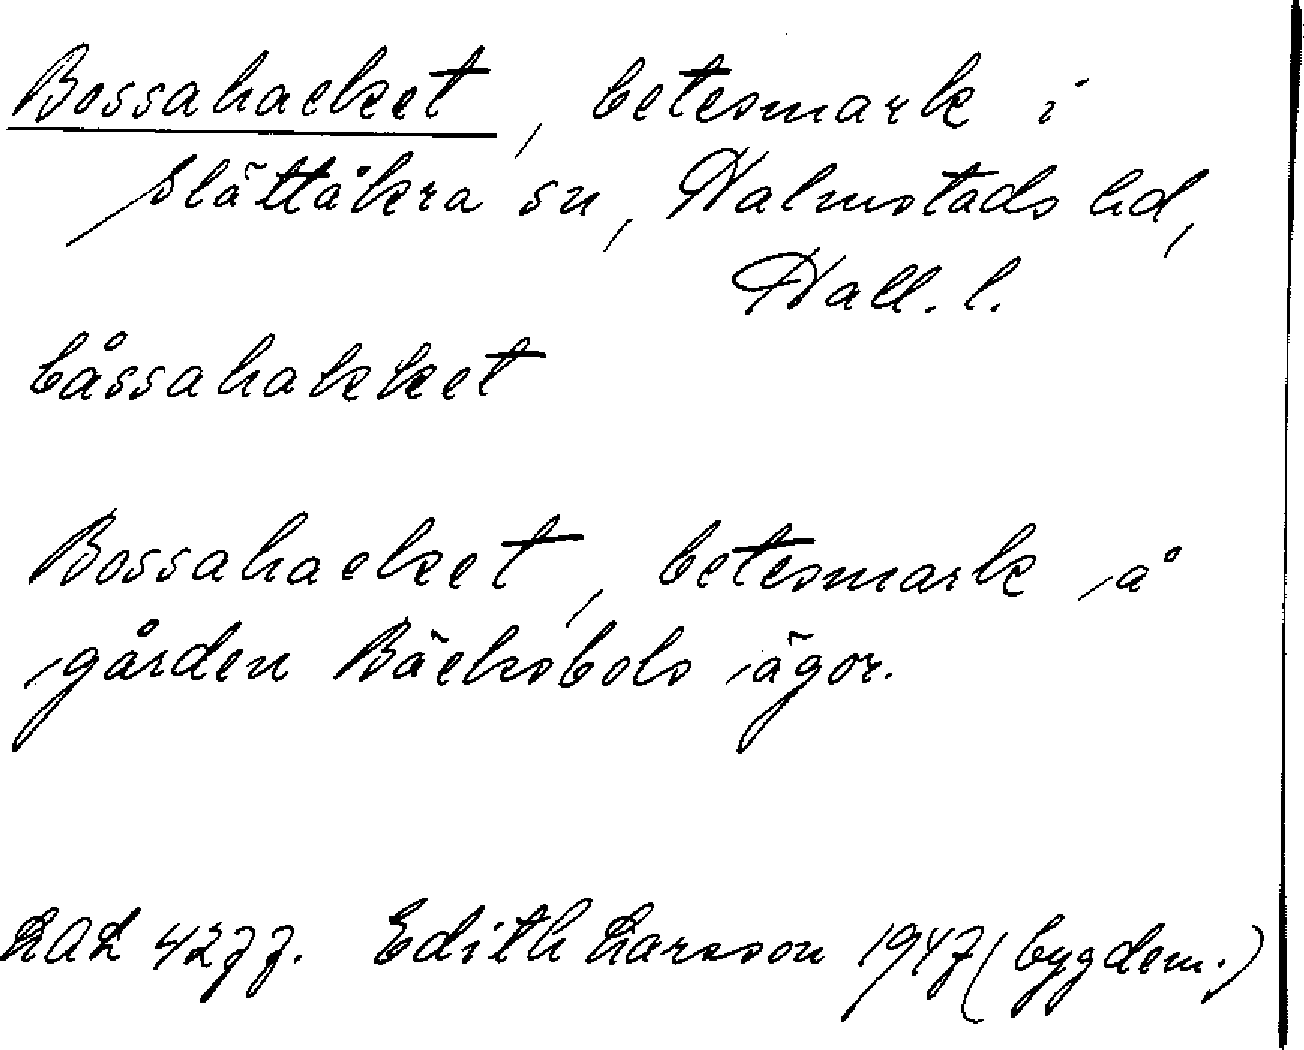 Bossahacket, betesmark i
Slättåkra sn, Halmstads hd,
Hall. l.
båssahakket
Bossahacket, betesmark å
gården Bäcksbols ägor.
LAL 4277. Edith Larsson 1947 (bygdem.)